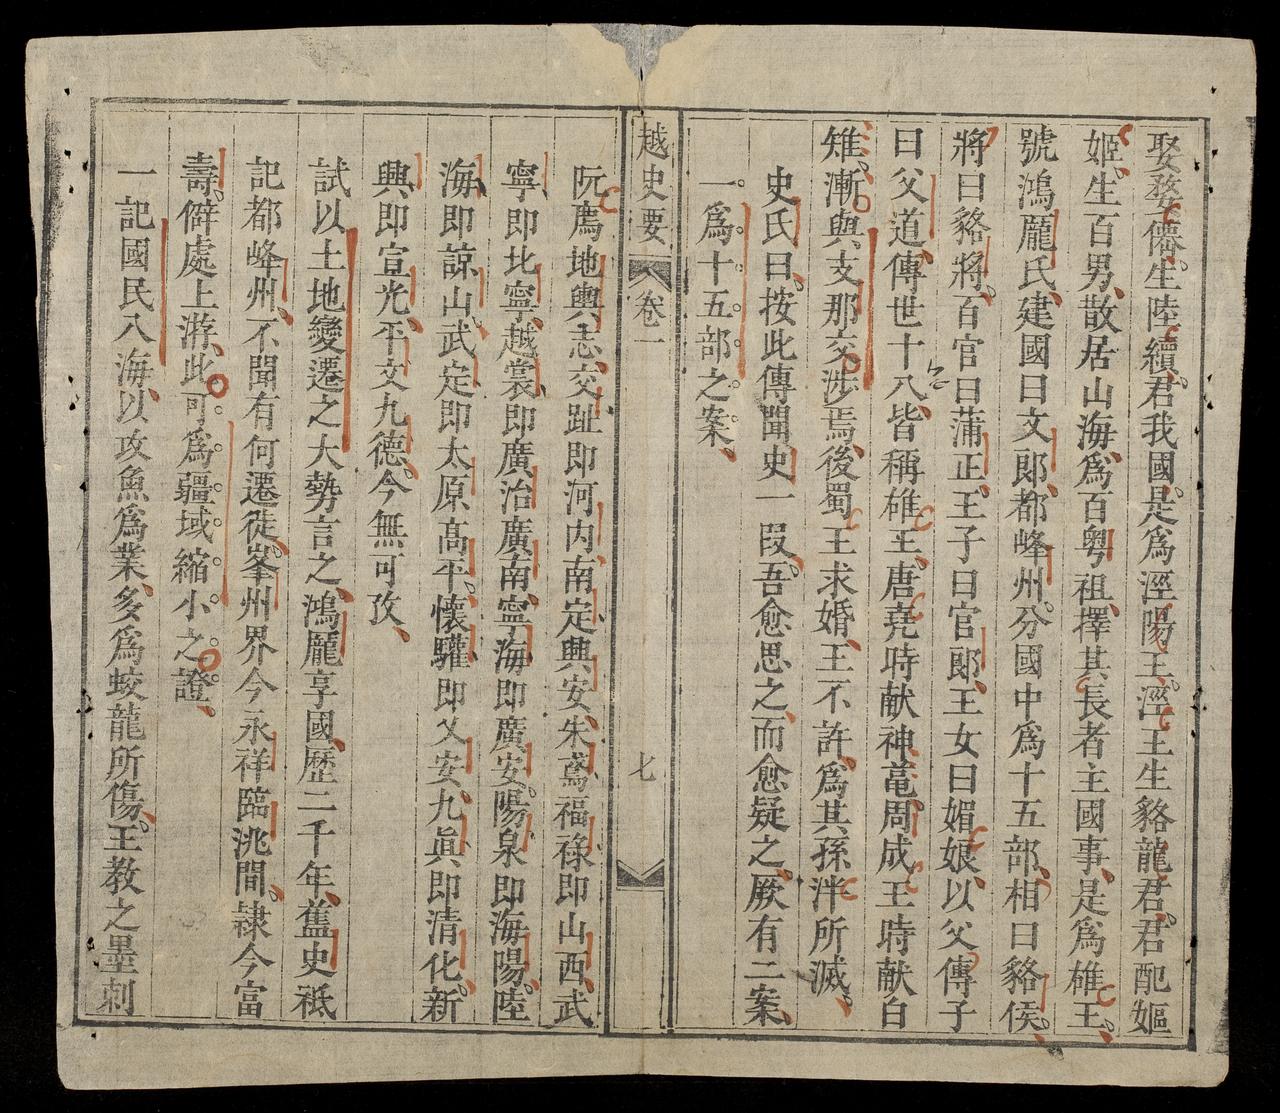 娶婺僊生陸續君我國是爲涇陽王涇王生貉龍君君配嫗
姬生百男散居山海爲百粵祖擇其長者主國事是爲雄王
號鴻龐氏建國曰文郎都峰州分國中爲十五部相曰貉侯
將曰貉將百官曰蒲正王子曰官郎王女曰媚娘以父傳子
曰父道傳世十八皆稱雄王唐堯時献神黿周成王時献白
雉漸與支那交涉焉後蜀王求婚王不許爲其孫泮所滅
史氏曰按此傳聞史一段吾愈思之而愈疑之厥有二案
一爲十五部之案
越史要 卷一 七
阮廌地輿志交趾即河内南定興安朱鳶福祿即山西武
寧即北寧越裳即廣治廣南寧海即廣安陽泉即海陽陸
海即諒山武定即太原高平懷驩即乂安九眞即清化新
興即宣光平文九德今無可攷
試以土地變遷之大勢言之鴻龐享國歷二千年舊史祇
記都峰州不聞有何遷徙峯州界今永祥臨洮間隷今富
壽僻處上游此可爲疆域縮小之證
一記國民入海以攻魚爲業多爲蛟龍所傷王教之墨刺